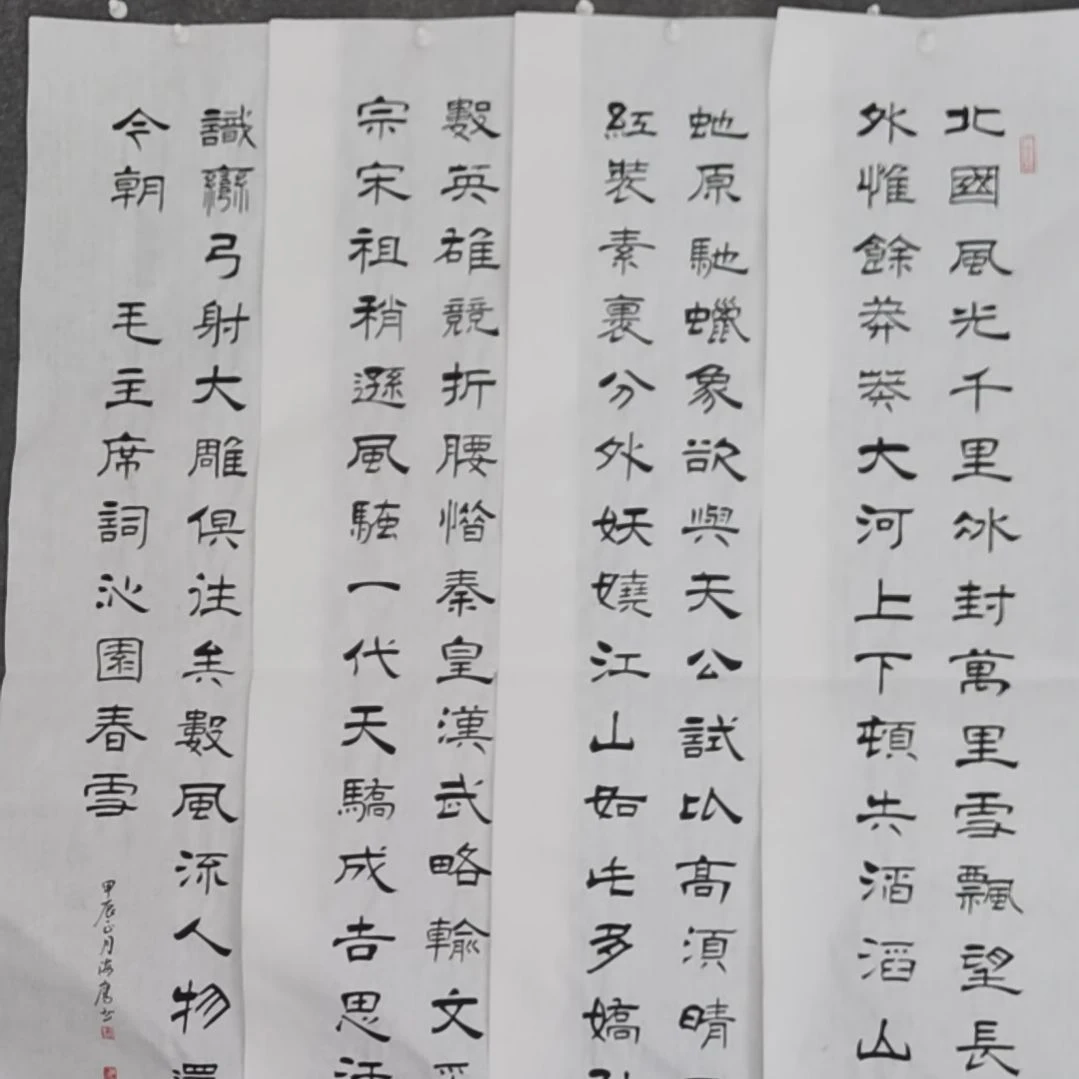 北國風光千里冰封萬里雪飄望長
外惟餘莽莽大河上下頓失滔滔山
虵原馳蠟象欲與天公試比高須晴
紅裝素裹分外妖嬈江山如此多嬌
數英雄競折腰惜秦皇漢武略輸文采
宗宋祖稍遜風騷一代天驕成吉思
識彎弓射大雕俱往矣數風流人物還
今朝 毛主席詞沁園春雪
甲辰正月